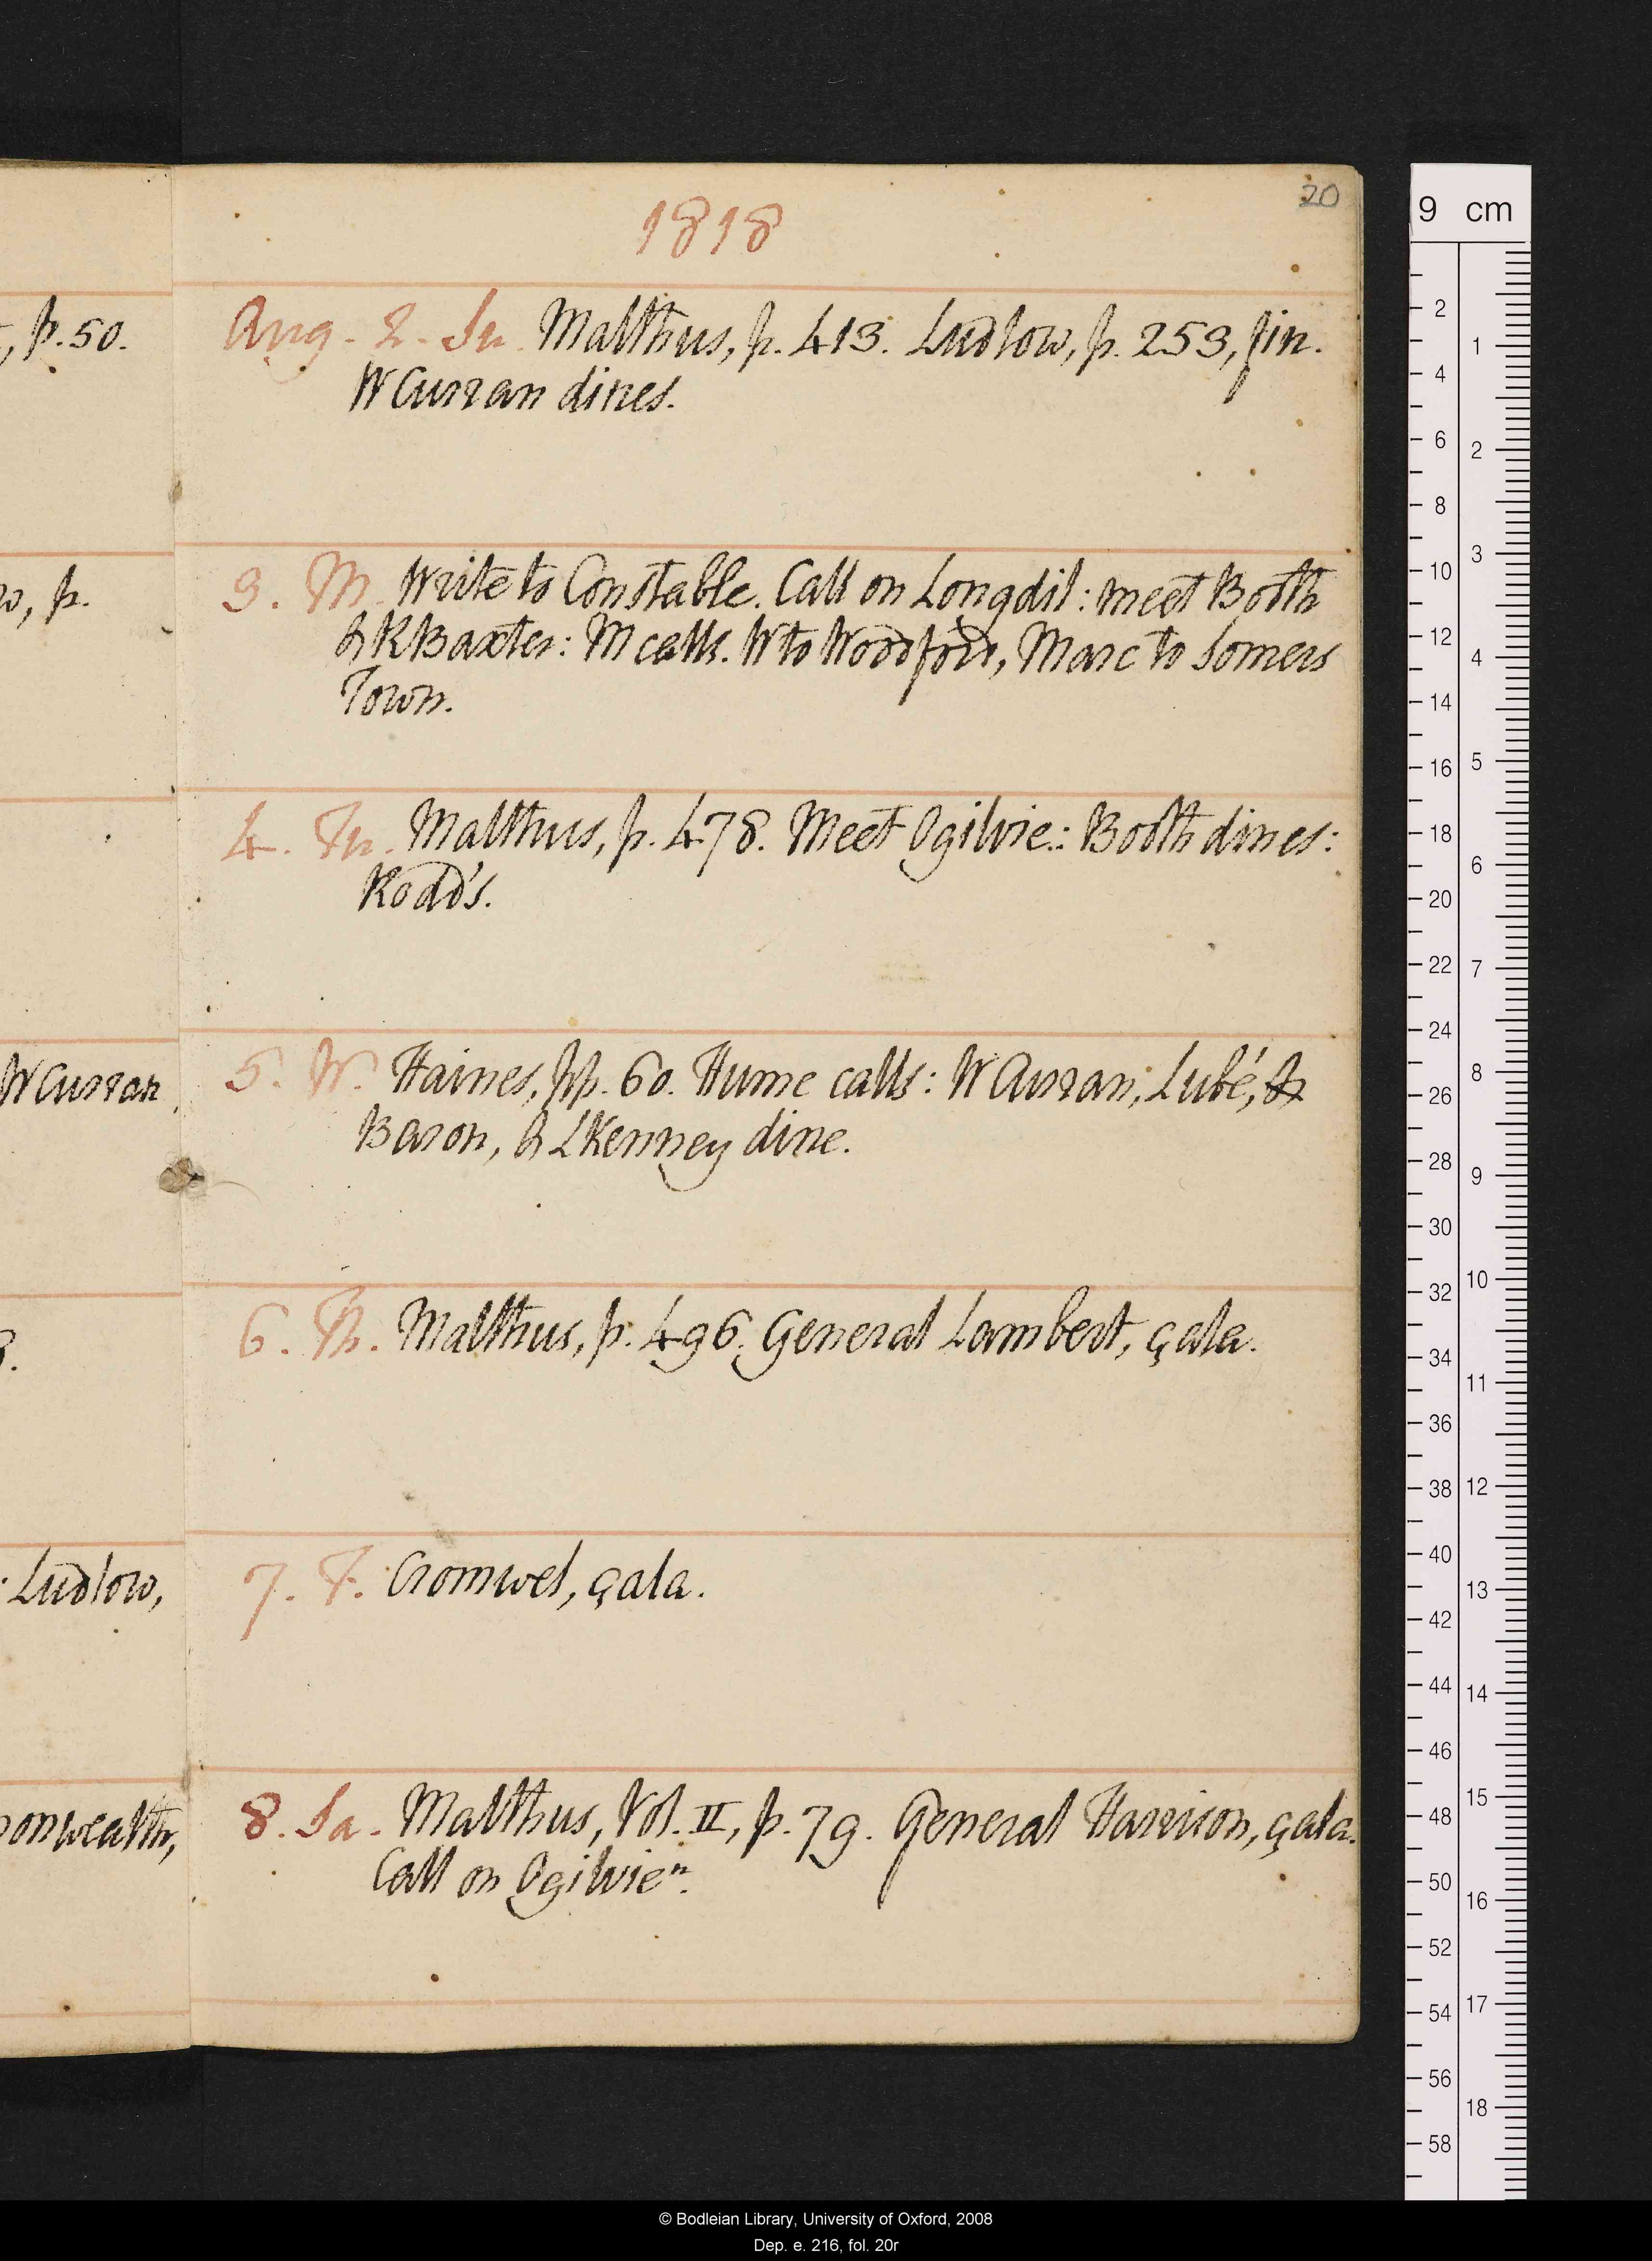 20
1818
, p. 50.
Aug. 2. Su. Malthus, p. 413. Ludlow, p. 253, fin.
W Curran dines.
w, p.
3. M. Write to Constable. Call on Longdil: meet Booth
& R Baxter: M calls. W to Woodford, Marc to Somers
Town.
4. Tu. Malthus, p. 478. Meet Ogilvie: Booth dines:
Rodd's.
W Curran
5. W. Haines, pp. 60. Hume calls: W Curran, Lubé, &
Baron, & L Kenney dine.
6. Th. Malthus, p. 496. General Lambert, çala.
Ludlow,
7. F. Cromwel, çala.
onwealth,
8. Sa. Malthus, Vol. II, p. 79. General Harrison, çala.
Call on Ogilvie n.
9 cm
2 4 6 8 10 12 14 16 18 20 22 24 26 28 30 32 34 36 38 40 42 44 46 48 50 52 54 56 58
1 2 3 4 5 6 7 8 9 10 11 12 13 14 15 16 17 18
© Bodleian Library, University of Oxford, 2008
Dep. e. 216, fol. 20r